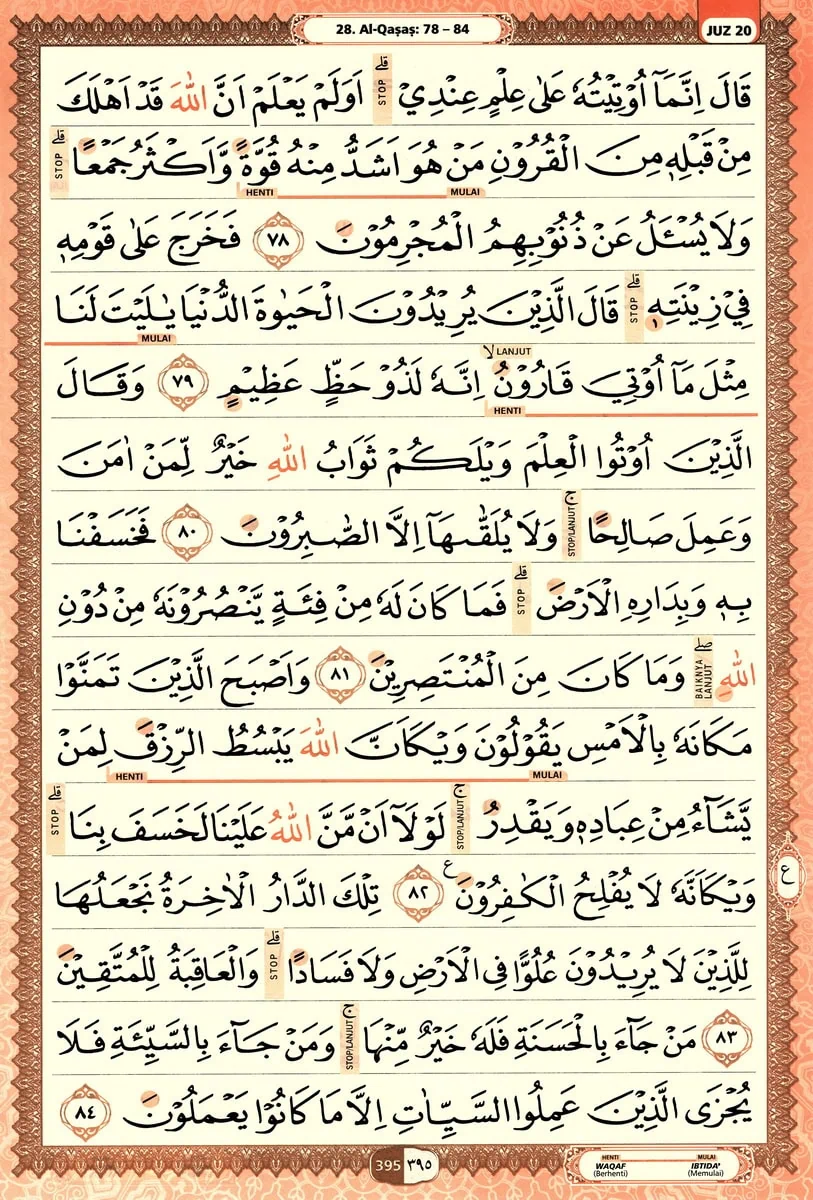 28. Al-Qaṣaṣ: 78 – 84
JUZ 20
قَالَ اِنَّمَآ اُوْتِيْتُهٗ عَلٰى عِلْمٍ عِنْدِيْ ۗ STOP اَوَلَمْ يَعْلَمْ اَنَّ اللّٰهَ قَدْ اَهْلَكَ
مِنْ قَبْلِهٖ مِنَ الْقُرُوْنِ مَنْ هُوَ اَشَدُّ مِنْهُ قُوَّةً وَّاَكْثَرُ جَمْعًا ۗ STOP
MULAI HENTI
وَلَا يُسْـَٔلُ عَنْ ذُنُوْبِهِمُ الْمُجْرِمُوْنَ ٧٨ فَخَرَجَ عَلٰى قَوْمِهٖ
فِيْ زِيْنَتِهٖ ۗ STOP قَالَ الَّذِيْنَ يُرِيْدُوْنَ الْحَيٰوةَ الدُّنْيَا يٰلَيْتَ لَنَا
MULAI
مِثْلَ مَآ اُوْتِيَ قَارُوْنُ ۙ LANJUT اِنَّهٗ لَذُوْ حَظٍّ عَظِيْمٍ ٧٩ وَقَالَ
HENTI
الَّذِيْنَ اُوْتُوا الْعِلْمَ وَيْلَكُمْ ثَوَابُ اللّٰهِ خَيْرٌ لِّمَنْ اٰمَنَ
وَعَمِلَ صَالِحًا ۚ STOP/LANJUT وَلَا يُلَقّٰىهَآ اِلَّا الصّٰبِرُوْنَ ٨٠ فَخَسَفْنَا
بِهٖ وَبِدَارِهِ الْاَرْضَ ۗ STOP فَمَا كَانَ لَهٗ مِنْ فِئَةٍ يَّنْصُرُوْنَهٗ مِنْ دُوْنِ
اللّٰهِ ۖ BAIKNYA LANJUT وَمَا كَانَ مِنَ الْمُنْتَصِرِيْنَ ٨١ وَاَصْبَحَ الَّذِيْنَ تَمَنَّوْا
مَكَانَهٗ بِالْاَمْسِ يَقُوْلُوْنَ وَيْكَاَنَّ اللّٰهَ يَبْسُطُ الرِّزْقَ لِمَنْ
MULAI HENTI
يَّشَاۤءُ مِنْ عِبَادِهٖ وَيَقْدِرُ ۚ STOP/LANJUT لَوْلَآ اَنْ مَّنَّ اللّٰهُ عَلَيْنَا لَخَسَفَ بِنَا ۗ STOP
وَيْكَاَنَّهٗ لَا يُفْلِحُ الْكٰفِرُوْنَ ࣖ ٨٢ تِلْكَ الدَّارُ الْاٰخِرَةُ نَجْعَلُهَا
ع
لِلَّذِيْنَ لَا يُرِيْدُوْنَ عُلُوًّا فِى الْاَرْضِ وَلَا فَسَادًا ۗ STOP وَالْعَاقِبَةُ لِلْمُتَّقِيْنَ
٨٣ مَنْ جَاۤءَ بِالْحَسَنَةِ فَلَهٗ خَيْرٌ مِّنْهَا ۚ STOP/LANJUT وَمَنْ جَاۤءَ بِالسَّيِّئَةِ فَلَا
يُجْزَى الَّذِيْنَ عَمِلُوا السَّيِّاٰتِ اِلَّا مَا كَانُوْا يَعْمَلُوْنَ ٨٤
395 ٣٩٥
HENTI MULAI
WAQAF IBTIDA'
(Berhenti) (Memulai)